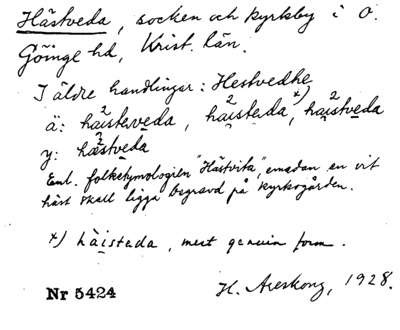 Hästveda, socken och kyrkby i Ö.
Göinge hd, Krist. län.
I äldre handlingar: Hestvedhe
ä: haistaveda, haistada x), haistveda
y: hästveda
Enl. folketymologien "Hästvita", emedan en vit
häst skall ligga begravd på kyrkogården.
x) häistada, mest genuin form.
Nr 5424 H. Areskong, 1928.